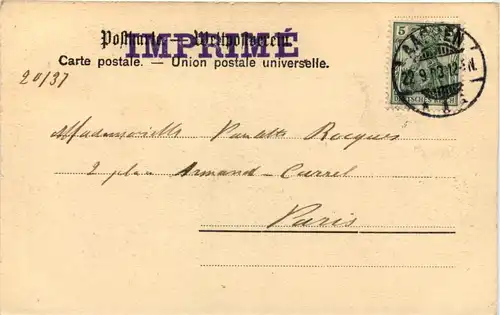 Postkarte — Weltpostverein.
IMPRIMÉ
Carte postale. — Union postale universelle.
20/37
5
AACHEN
Mademoiselle Rocques
2 place Armand-Carrel
Paris